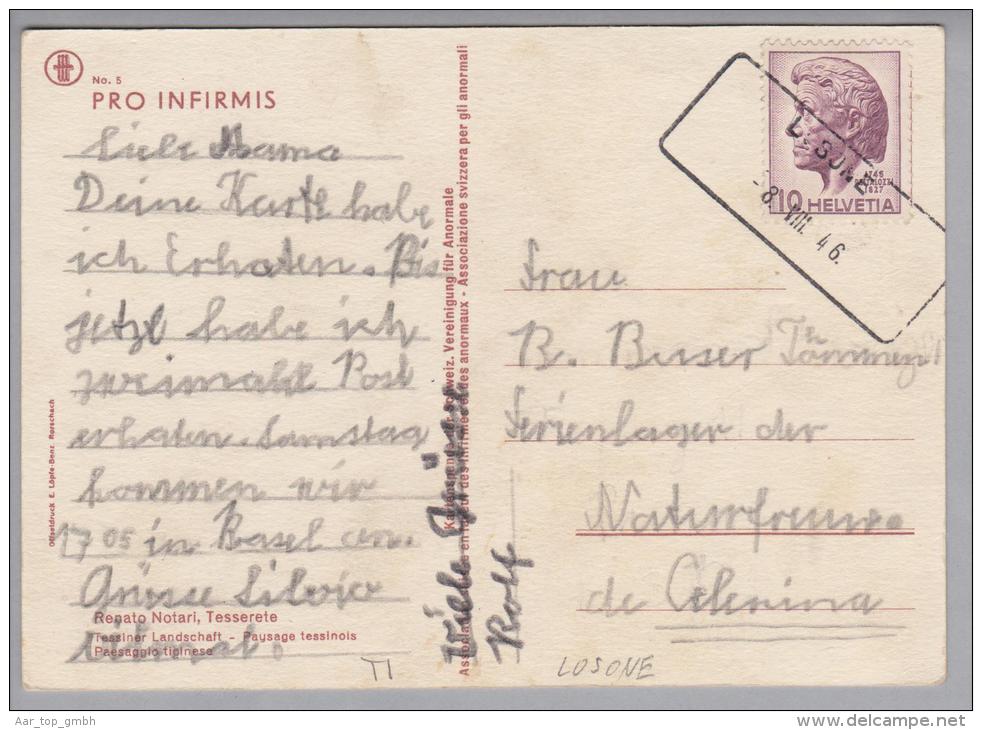 No. 5
PRO INFIRMIS
Liebe Mama
Deine Karte habe
ich Erhaten. Bis
jetzt habe ich
zweimahl Post
erhaten. Samstag
kommen wir
1705 in Basel an.
Grüsse Silvia
Renato Notari, Tesserete
Tessiner Landschaft - Paysage tessinois
Paesaggio ticinese
Offsetdruck E. Löpfe-Benz, Rorschach
Schweiz. Vereinigung für Anormale
Association suisse en faveur des infirmes et des anormaux - Associazione svizzera per gli anormali
Viele Grüsse
Rolf
LOSONE
-8. VIII. 46.
1746
PESTALOZZI
1827
10 HELVETIA
Frau
B. Buser
Ferienlager der
Naturfreunde
de Celerina
TI
LOSONE
Aar_top_gmbh
www.delcampe.net